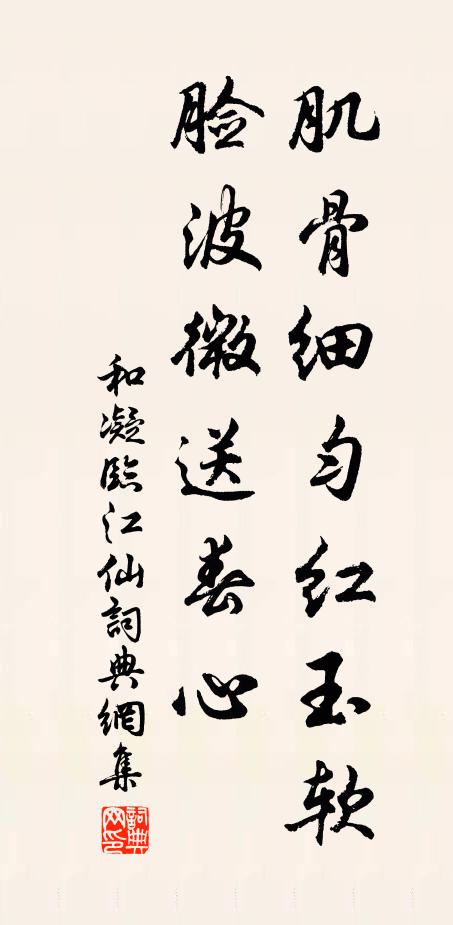 肌骨细匀红玉软
脸波微送春心
和凝臨江仙詞典網集
詞典網印